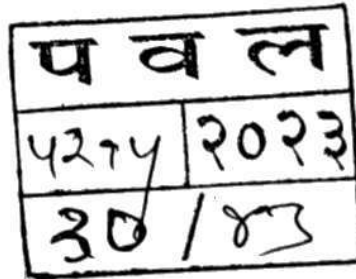 प व ल
५२१५ २०२३
३७ / ४३